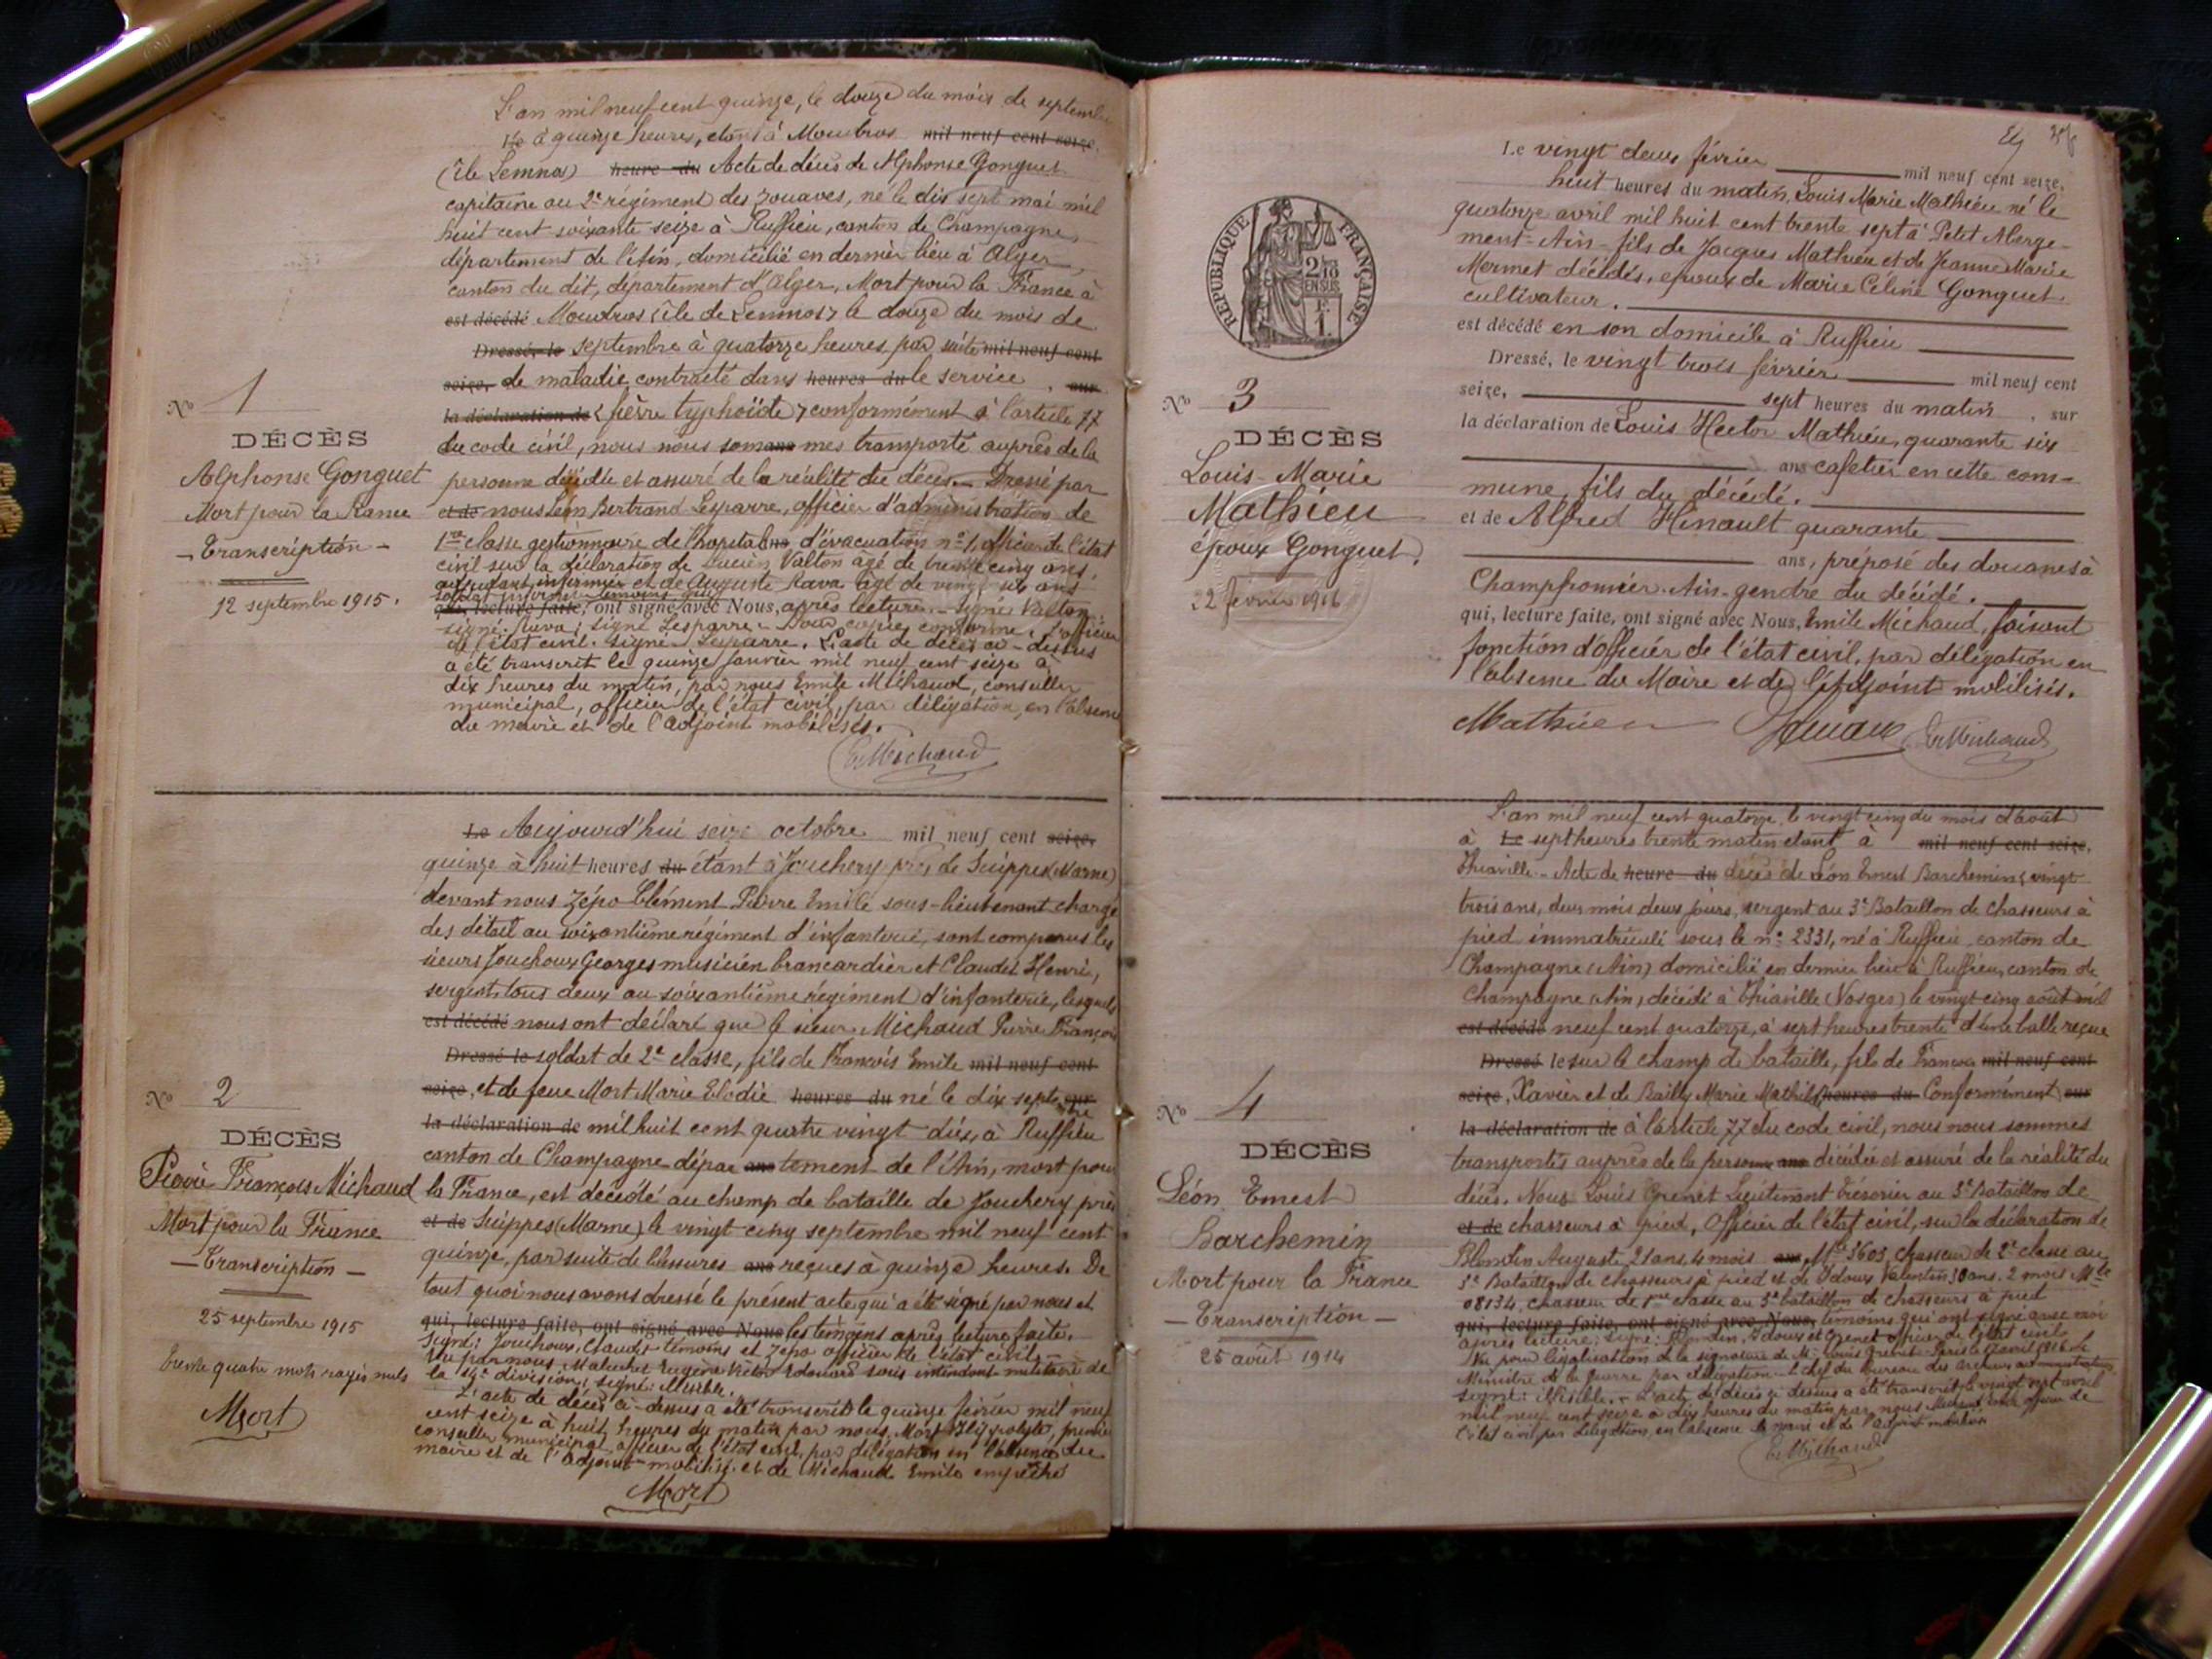 L'an mil neuf cent quinze, le douze du mois de septembre
Le à quinze heures, étant à Moudros mil neuf cent seize.
(île Lemnos) heure du Acte de décès de Alphonse Gonguet
capitaine au 2e régiment des zouaves, né le dix sept mai mil
huit cent soixante seize à Ruffieu, canton de Champagne,
département de l'Ain, domicilié en dernier lieu à Alger
canton du dit, département d'Alger, Mort pour la France à
est décédé Moudros (île de Lemnos) le douze du mois de
Dressé, le septembre à quatorze heures par suite mil neuf cent
seize, de maladie contracté dans heures du le service , sur
la déclaration de (fièvre typhoïde) conformément à l'article 77
du code civil, nous nous som ans mes transporté auprès de la
personne décédée et assuré de la réalité du décès. Dressé par
et de nous Léon Bertrand Lesparre, officier d'administration de
1re classe gestionnaire de l'hopital ans d'évacuation n°1, officier de l'état
civil sur la déclaration de Lucien Valton âgé de trente cinq ans,
infirmier et de Auguste Rava âgé de vingt six ans
soldat infirmier témoins qui
qui, lecture faite, ont signé avec Nous, après lecture. – Signé Valton
signé: Rava; signé Lesparre. Pour copie conforme, l'officier
de l'état civil. signé Lesparre. L'acte de décès ci-dessus
a été transcrit le quinze Janvier mil neuf cent seize à
dix heures du matin, par nous Emile Michaud, conseiller
municipal, officier de l'état civil, par délégation, en l'absence
du maire et de l'adjoint mobilisés.
E. Michaud
N° 1
DÉCÈS
Alphonse Gonguet
Mort pour la France
– Transcription –
12 septembre 1915.
Le Aujourd'hui seize octobre mil neuf cent seize,
quinze à huit heures du étant à Jouchery près de Suippes (Marne)
devant nous Zépo Clément Pierre Emile sous-lieutenant chargé
des détail au soixantième régiment d'infanterie, sont comparus les
sieurs Jouchoux Georges musicien brancardier et Claudet Henri,
sergent, tous deux au soixantième régiment d'infanterie, lesquels
est décédé nous ont déclaré que le sieur Michaud Pierre François
Dressé le soldat de 2e classe, fils de François Emile mil neuf cent
seize, et de feue Mort Marie Elodie heures du né le dix sept sur
la déclaration de mil huit cent quatre vingt dix, à Ruffieu
canton de Champagne dépar ans tement de l'Ain, mort pour
la France, est décédé au champ de bataille de Jouchery près
et de Suippes (Marne) le vingt cinq septembre mil neuf cent
quinze, par suite de blessures ans reçues à quinze heures. De
tout quoi nous avons dressé le présent acte qui a été signé par nous et
qui, lecture faite, ont signé avec Nous les témoins après lecture faite.
Signé: Jouchoux, Claudet témoins et Zépo officier de l'état civil.
Vu par nous Eugène Victor Edouard sous intendant militaire de
la division, signé: illisible.
L'acte de décès ci-dessus a été transcrit le quinze février mil neuf
cent seize à huit heures du matin par nous Mort Hippolyte, premier
conseiller municipal officier de l'état civil, par délégation en l'absence du
maire et de l'adjoint mobilisés et de Michaud Emile empêché
Mort
N° 2
DÉCÈS
Pierre François Michaud
Mort pour la France
– Transcription –
25 septembre 1915
trente quatre mots rayés nuls
Mort
Le vingt deux février mil neuf cent seize,
huit heures du matin, Louis Marie Mathieu né le
quatorze avril mil huit cent trente sept à Petit Aberge-
ment-Ain-fils de Jacques Mathieu et de Jeanne Marie
Mermet décédés, époux de Marie Céline Gonguet
cultivateur.
est décédé en son domicile à Ruffieu
Dressé, le vingt trois février mil neuf cent
seize, sept heures du matin , sur
la déclaration de Louis Hector Mathieu, quarante six
ans cafetier en cette com-
mune, fils du décédé.
et de Alfred Hinault quarante
ans, préposé des douanes à
Champfromier-Ain-gendre du décédé.
qui, lecture faite, ont signé avec Nous, Emile Michaud, faisant
fonction d'officier de l'état civil, par délégation en
l'absence du Maire et de l'Adjoint mobilisés.
Mathieu E. Michaud
RÉPUBLIQUE FRANÇAISE
2/10 EN SUS
F. 1.
N° 3
DÉCÈS
Louis-Marie
Mathieu
époux Gonguet.
22 février 1916
L'an mil neuf cent quatorze, le vingt cinq du mois d'août
à Le sept heures trente matin étant à mil neuf cent seize,
Thiaville – Acte de heure du décès de Léon Ernest Barchemin, vingt
trois ans, deux mois deux jours, sergent au 3e Bataillon de chasseurs à
pied immatriculé sous le n° 2331, né à Ruffieu canton de
Champagne (Ain) domicilié en dernier lieu à Ruffieu, canton de
Champagne (Ain) décédé à Thiaville (Vosges) le vingt cinq août mil
est décédé neuf cent quatorze, à sept heures trente d'une balle reçue
Dressé le sur le champ de bataille, fils de François mil neuf cent
seize, Xavier et de Bailly Marie Mathilde heures du Conformément sur
la déclaration de à l'article 77 du code civil, nous nous sommes
transportés auprès de la personne ans décédée et assuré de la réalité du
décès. Nous Louis Grenet Lieutenant trésorier au 3e Bataillon de
et de chasseurs à pied, Officier de l'état civil, sur la déclaration de
Blondin Auguste 21 ans 4 mois ans, Mle 3603, chasseur de 2e classe au
3e Bataillon de chasseurs à pied et de Idoux Valentin 30 ans. 2 mois Mle
08134, chasseur de 1re classe au 3e bataillon de chasseurs à pied
qui, lecture faite, ont signé avec Nous, témoins qui ont signé avec moi
après lecture; signé: Blondin, Idoux et Grenet officier de l'état civil
Vu pour légalisation de la signature de Mr Louis Grenet – Paris le avril 1916 le
Ministre de la Guerre par délégation – le chef du bureau des archives administratives
signé: illisible. – L'acte de décès ci-dessus a été transcrit le vingt sept avril
mil neuf cent seize à dix heures du matin par nous Michaud Emile officier de
l'état civil par délégation, en l'absence du maire et de l'adjoint mobilisés
E. Michaud
N° 4
DÉCÈS
Léon Ernest
Barchemin
Mort pour la France
– Transcription –
25 août 1914